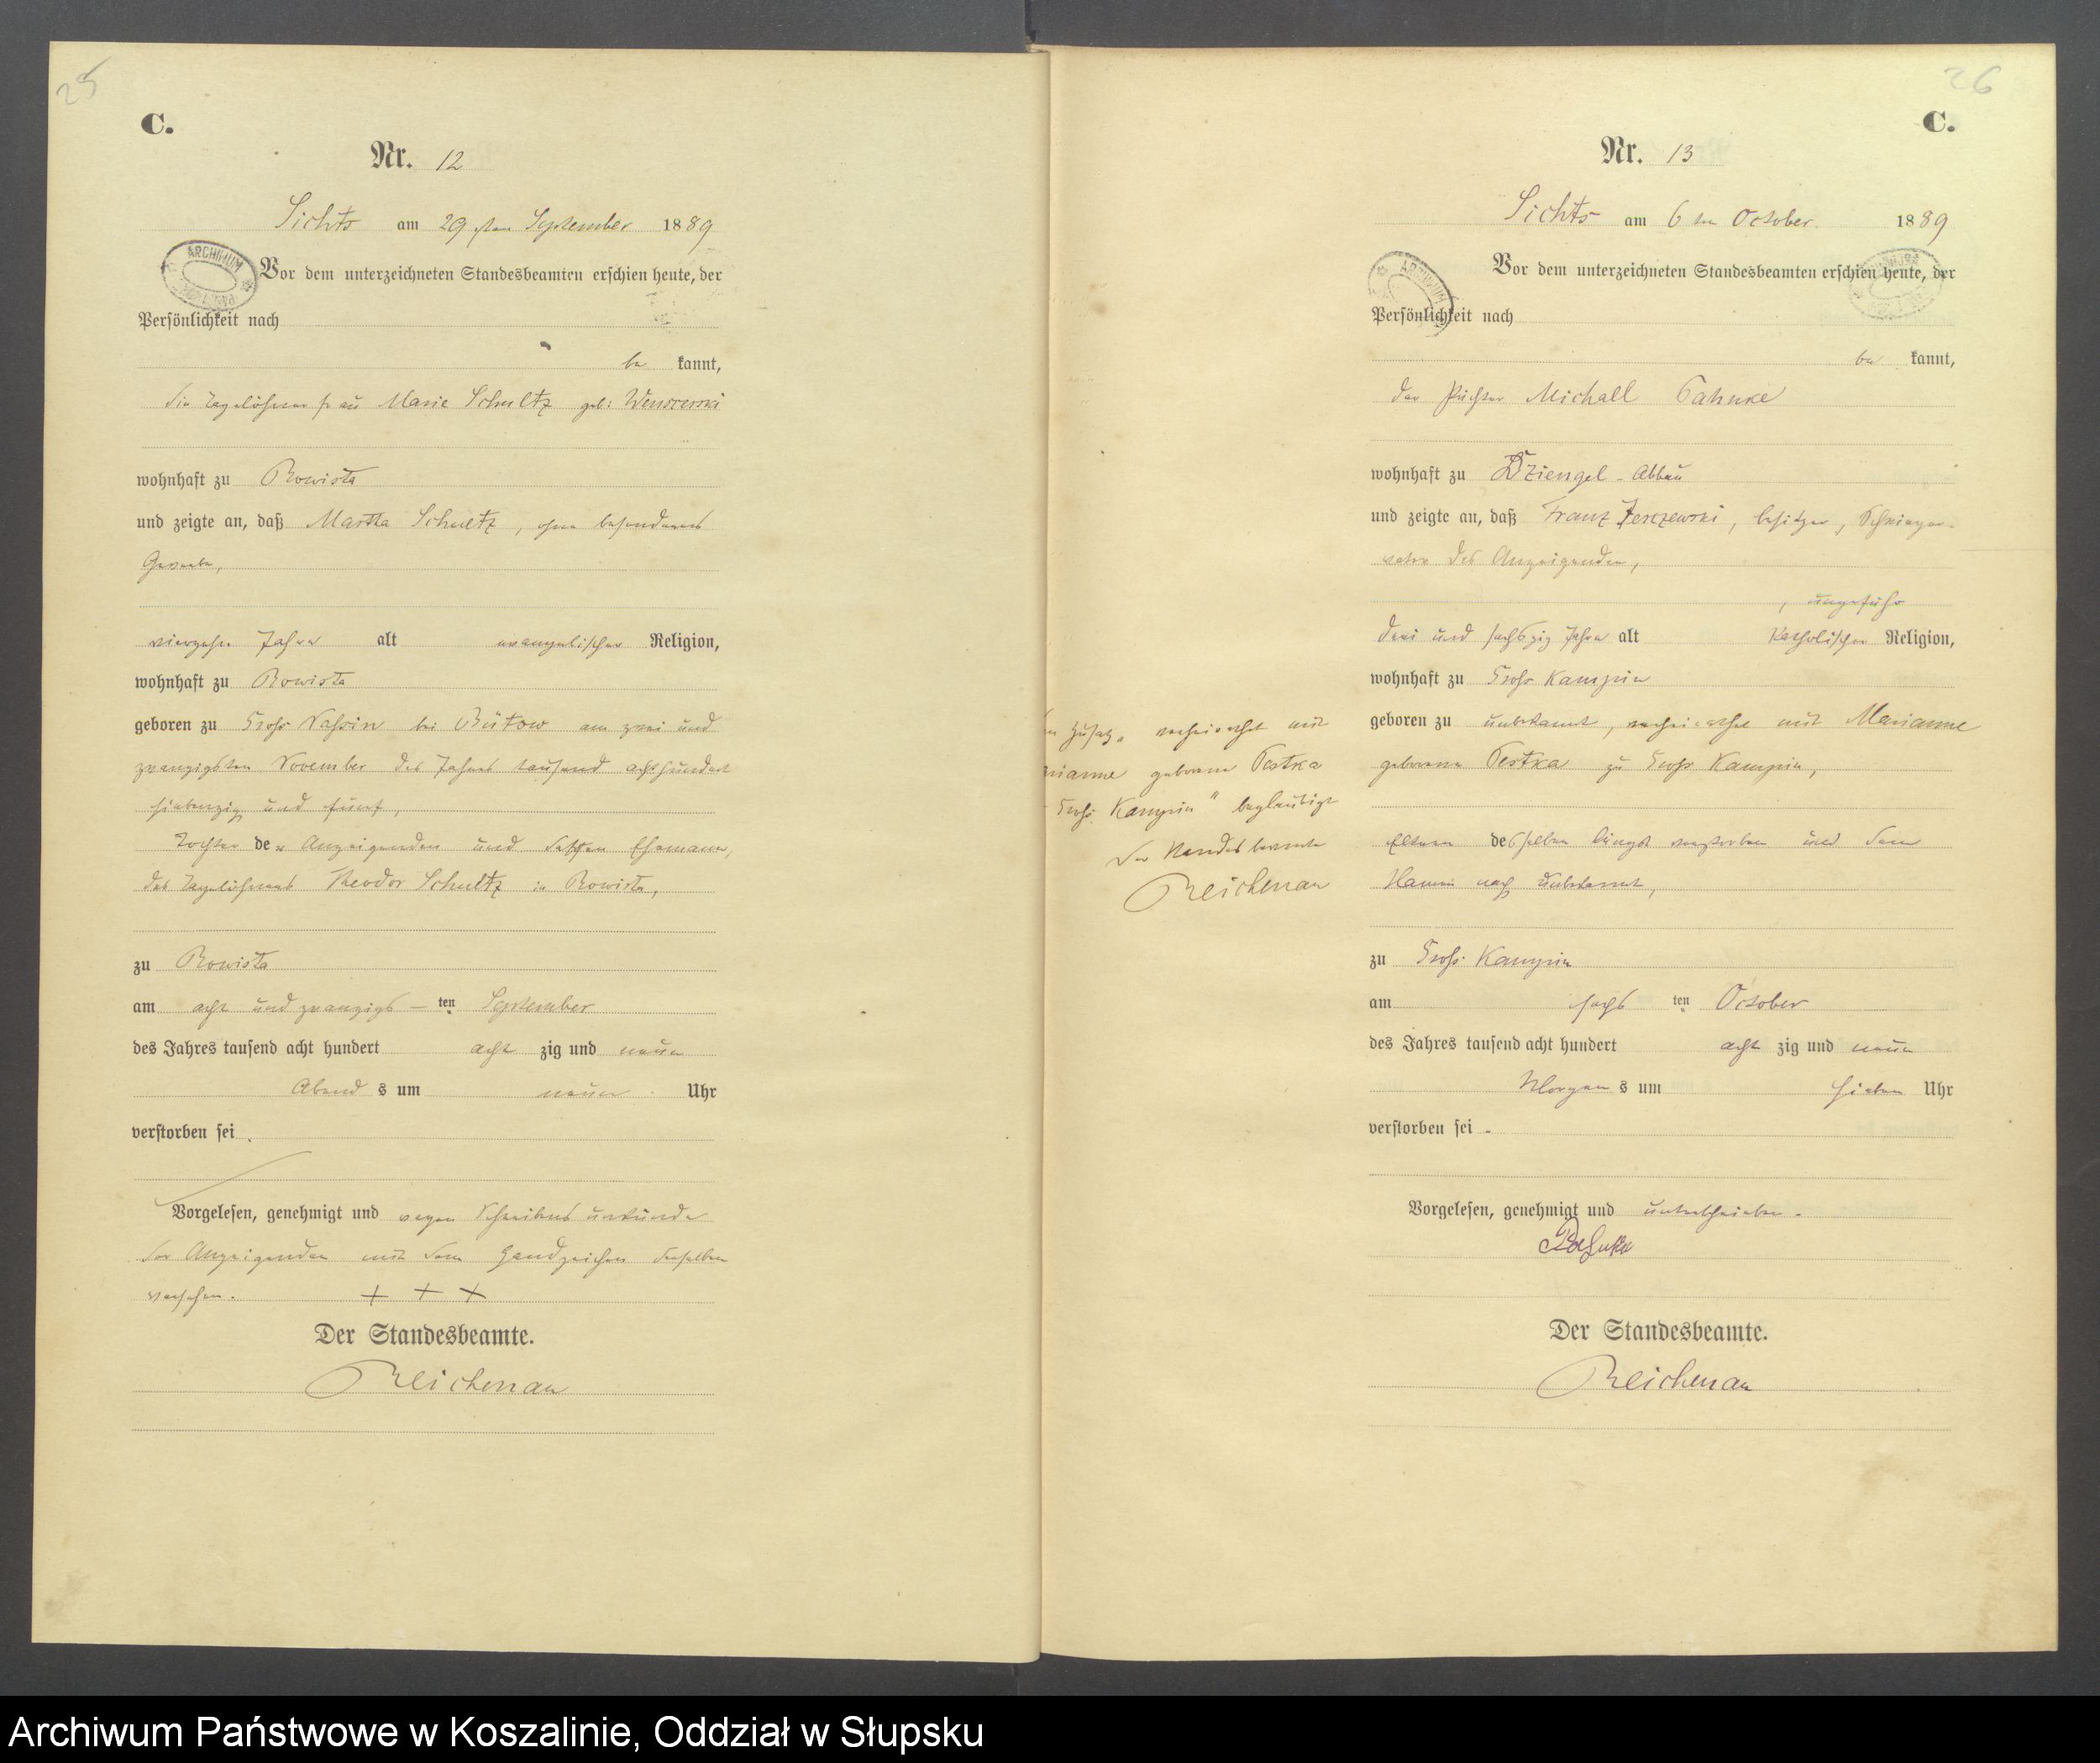 25
C.
Nr. 12
Lichts am 29sten September 1889
ARCHIWUM
Vor dem unterzeichneten Standesbeamten erschien heute, der
Persönlichkeit nach
be kannt,
die Tagelöhner frau Marie Schultz geb:
wohnhaft zu Rowista
und zeigte an, daß Martha Schultz, ohne besonderes
Gewerbe,
vierzehn Jahre alt evangelischer Religion,
wohnhaft zu Rowista
geboren zu Groß Nassin bei Bütow am zwei und
zwanzigsten November des Jahres tausend achthundert
siebenzig und fünf,
Tochter der Anzeigenden und dessen Ehemann,
des Tagelöhners Theodor Schultz in Rowista,
zu Rowista
am acht und zwanzigs-ten September
des Jahres tausend acht hundert acht zig und neun
Abend s um neun Uhr
verstorben sei.
Vorgelesen, genehmigt und wegen Schreibensunkunde
der Anzeigenden mit dem Handzeichen derselben
versehen. + + +
Der Standesbeamte.
Reichenau
26
C.
Nr. 13
Lichts am 6ten October 1889
ARCHIWUM
Vor dem unterzeichneten Standesbeamten erschien heute, der
Persönlichkeit nach
be kannt,
der Pächter Michall Pahnke
wohnhaft zu Dziengel-Abbau
und zeigte an, daß Franz Jerczewski, besitzer, Schwieger-
vater des Anzeigenden,
, ungefähr
drei und sechszig Jahre alt katholischer Religion,
wohnhaft zu Groß Kampin
geboren zu unbekannt, verheirathet mit Marianne
geborene Pestka zu Groß Kampin,
Eltern desselben längst verstorben und dem
Namen nach unbekannt,
zu Groß Kampin
am sechs ten October
des Jahres tausend acht hundert acht zig und neun
Morgen s um sieben Uhr
verstorben sei.
Vorgelesen, genehmigt und unterschrieben.
Pahnke
Der Standesbeamte.
Reichenau
Zusatz „verheirathet mit
rianne geborene Pestka
Groß Kampin" beglaubigt
Der Standesbeamte
Reichenau
Archiwum Państwowe w Koszalinie, Oddział w Słupsku